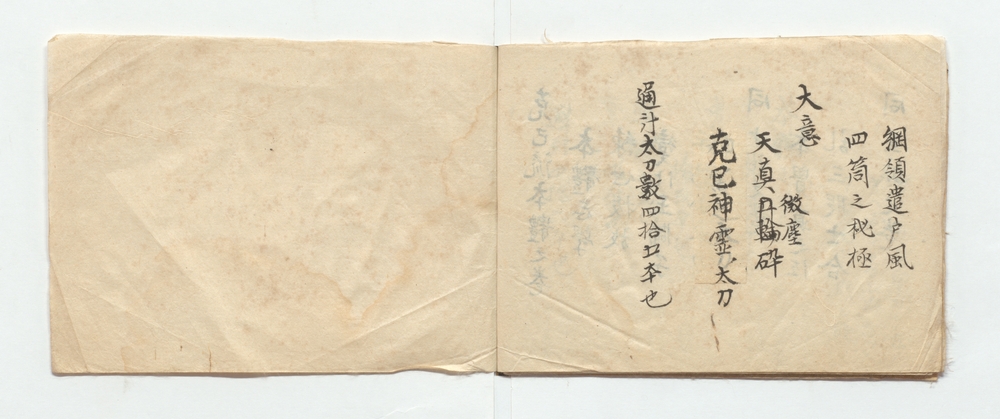 綱領遣戸風
四箇之秘極
大意
微塵
天真、月輪砕
克已神霊太刀
通計太刀數四拾五本也